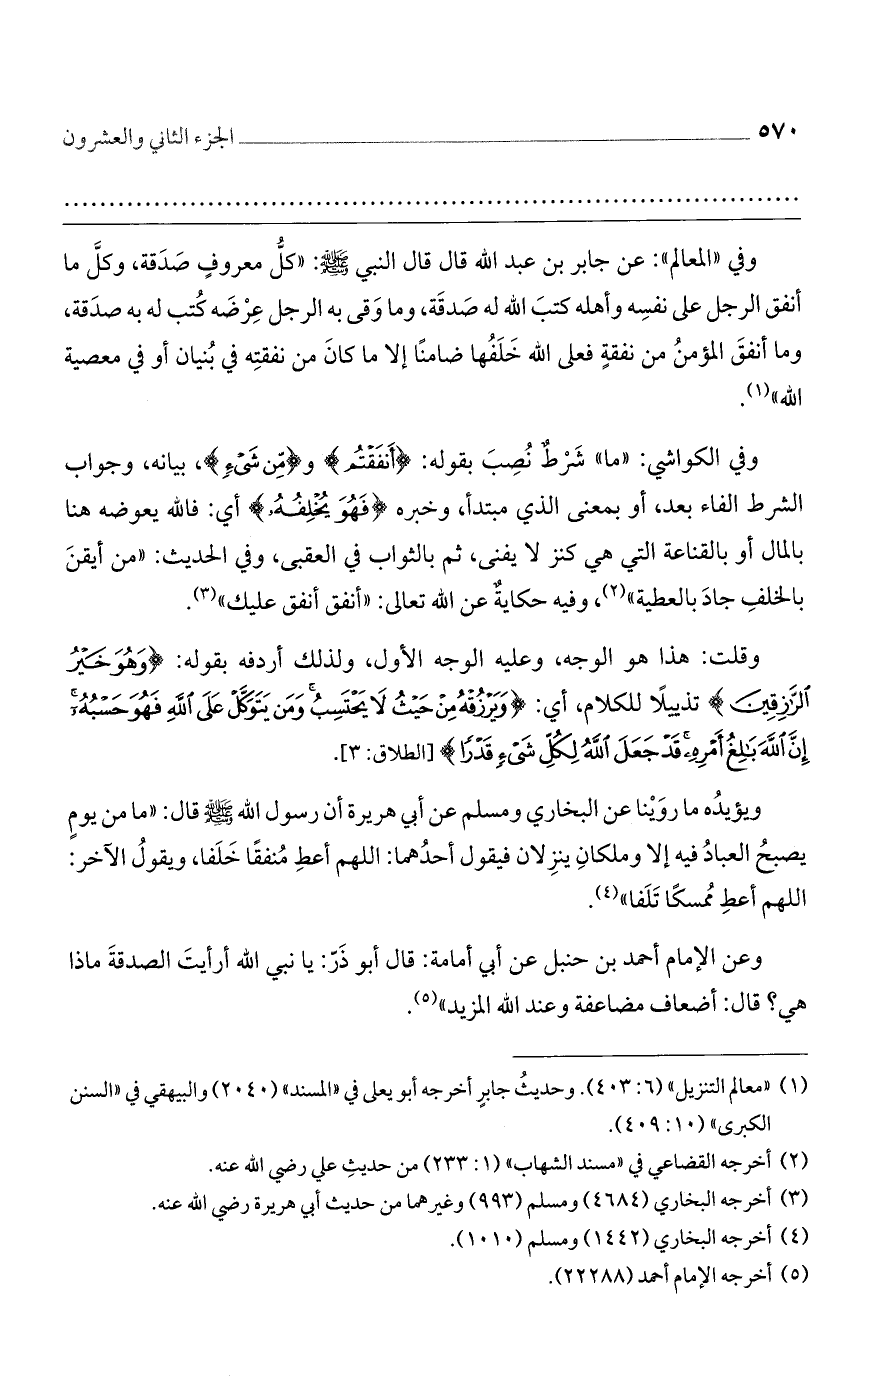 ٥٧٠ ــــــــــــــــــــ الجزء الثاني والعشرون
................................................................................
وفي «المعالم»: عن جابر بن عبد الله قال قال النبي ﷺ: «كلُّ معروفٍ صَدَقة، وكلَّ ما
أنفق الرجل على نفسِه وأهله كتبَ الله له صَدقَة، وما وَقى به الرجل عِرْضَه كُتب له به صدَقة،
وما أنفقَ المؤمنُ من نفقةٍ فعلى الله خَلَفُها ضامنًا إلا ما كانَ من نفقتِه في بُنيان أو في معصية
الله»(١).
وفي الكواشي: «ما» شَرْطٌ نُصِبَ بقوله: ﴿أَنفَقْتُم﴾ و﴿مِّن شَىْءٍ﴾، بيانه، وجواب
الشرط الفاء بعد، أو بمعنى الذي مبتدأ، وخبره ﴿فَهُوَ يُخْلِفُهُۥ﴾ أي: فالله يعوضه هنا
بالمال أو بالقناعة التي هي كنز لا يفنى، ثم بالثواب في العقبى، وفي الحديث: «من أيقنَ
بالخلفِ جادَ بالعطية»(٢)، وفيه حكايةٌ عن الله تعالى: «أنفق أنفق عليك»(٣).
وقلت: هذا هو الوجه، وعليه الوجه الأول، ولذلك أردفه بقوله: ﴿وَهُوَ خَيْرُ
ٱلرَّٰزِقِينَ﴾ تذييلًا للكلام، أي: ﴿وَيَرْزُقْهُ مِنْ حَيْثُ لَا يَحْتَسِبُ ۚ وَمَن يَتَوَكَّلْ عَلَى ٱللَّهِ فَهُوَ حَسْبُهُۥٓ ۚ
إِنَّ ٱللَّهَ بَٰلِغُ أَمْرِهِۦ ۚ قَدْ جَعَلَ ٱللَّهُ لِكُلِّ شَىْءٍ قَدْرًا﴾ [الطلاق: ٣].
ويؤيدُه ما روَيْنا عن البخاري ومسلم عن أبي هريرة أن رسول الله ﷺ قال: «ما من يومٍ
يصبحُ العبادُ فيه إلا وملكانِ ينزِلان فيقول أحدُهما: اللهم أعطِ مُنفقًا خَلَفا، ويقولُ الآخر:
اللهم أعطِ مُمسكًا تَلَفا»(٤).
وعن الإمام أحمد بن حنبل عن أبي أمامة: قال أبو ذَرّ: يا نبي الله أرأيتَ الصدقةَ ماذا
هي؟ قال: أضعاف مضاعفة وعند الله المزيد»(٥).
(١) «معالم التنزيل» (٦: ٤٠٣). وحديثُ جابرٍ أخرجه أبو يعلى في «المسند» (٢٠٤٠) والبيهقي في «السنن
الكبرى» (١٠: ٤٠٩).
(٢) أخرجه القضاعي في «مسند الشهاب» (١: ٢٣٣) من حديثِ علي رضي الله عنه.
(٣) أخرجه البخاري (٤٦٨٤) ومسلم (٩٩٣) وغيرهما من حديث أبي هريرة رضي الله عنه.
(٤) أخرجه البخاري (١٤٤٢) ومسلم (١٠١٠).
(٥) أخرجه الإمام أحمد (٢٢٢٨٨).